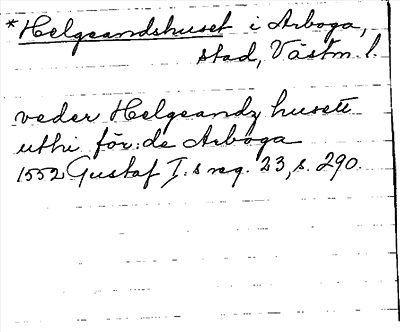 *Helgeandshuset i Arboga,
stad, Västm. l.
veder Helgeandz husett
uthi för:de Arboga
1552 Gustaf I:s reg. 23, s. 290.